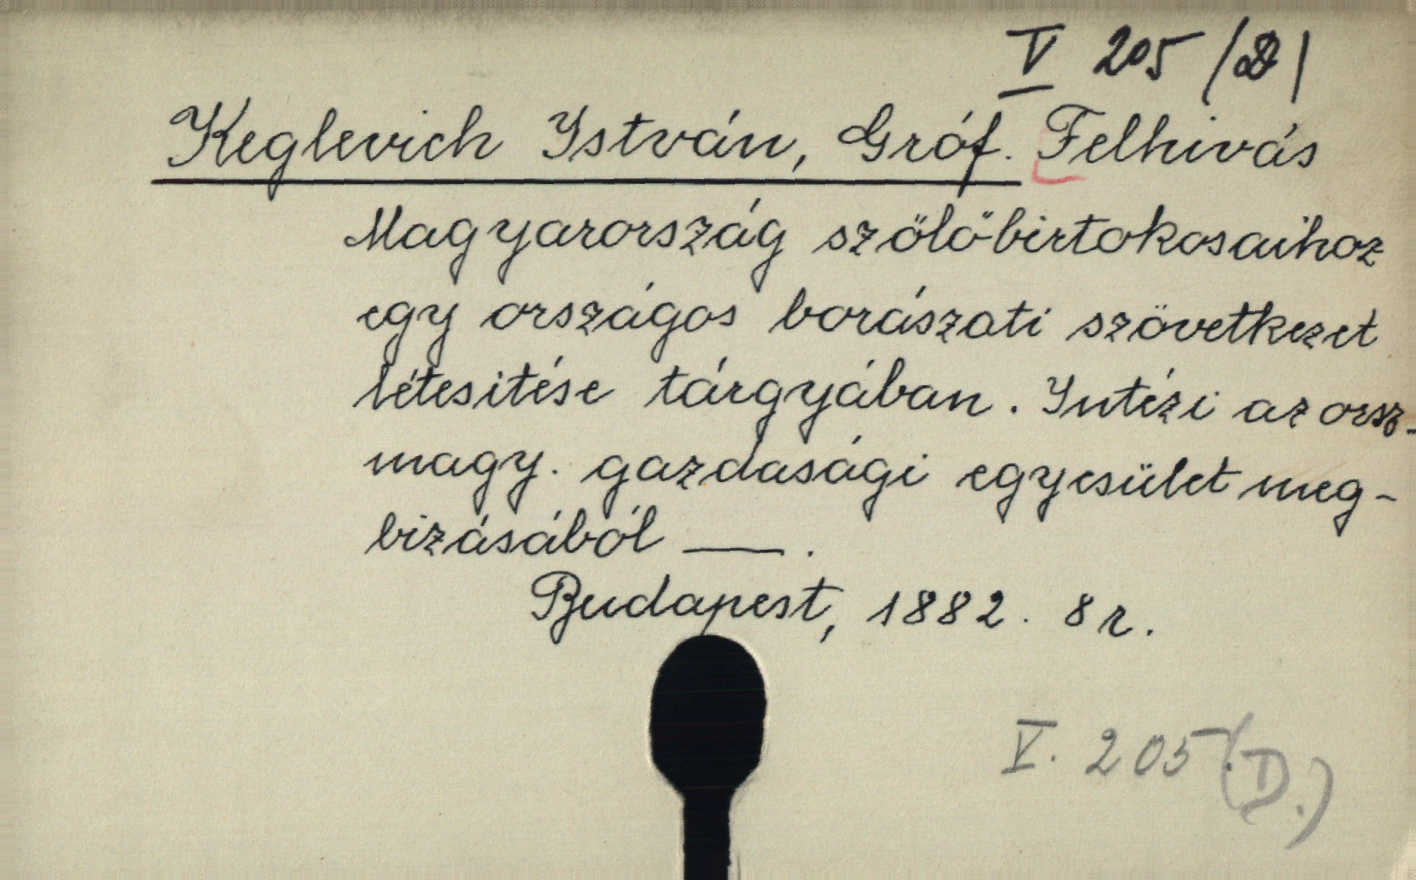 V 205 /D/
Keglevich István, Gróf. Felhivás
Magyarország szőlőbirtokosaihoz
egy országos borászati szövetkezet
létesitése tárgyában. Intézi az orsz.
magy. gazdasági egyesület meg-
bizásából —.
Budapest, 1882. 8r.
V. 205 (D.)